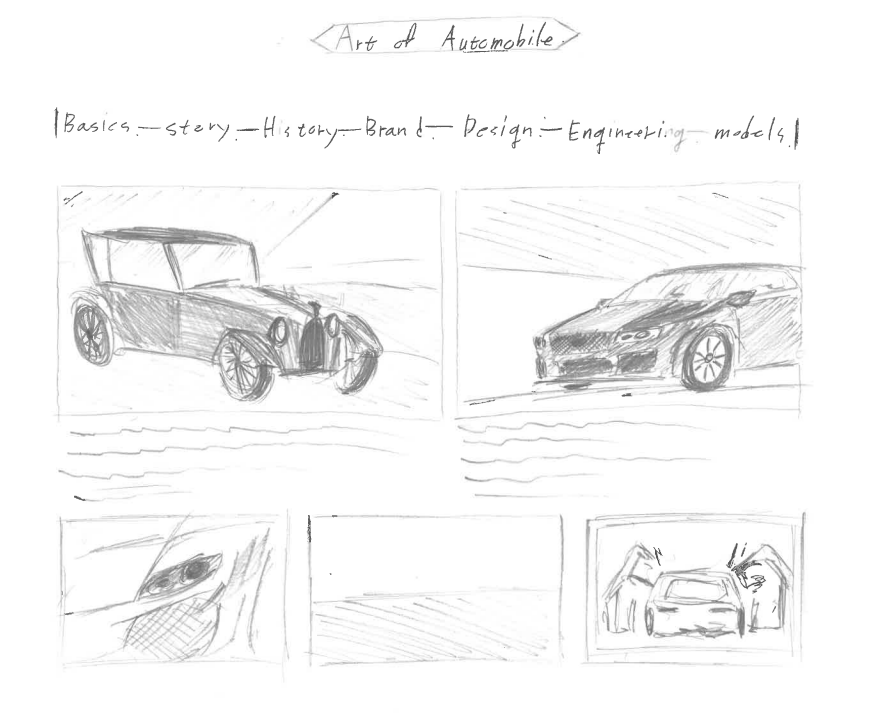 Art of Automobile
Basics - story - History - Brand - Design - Engineering - models